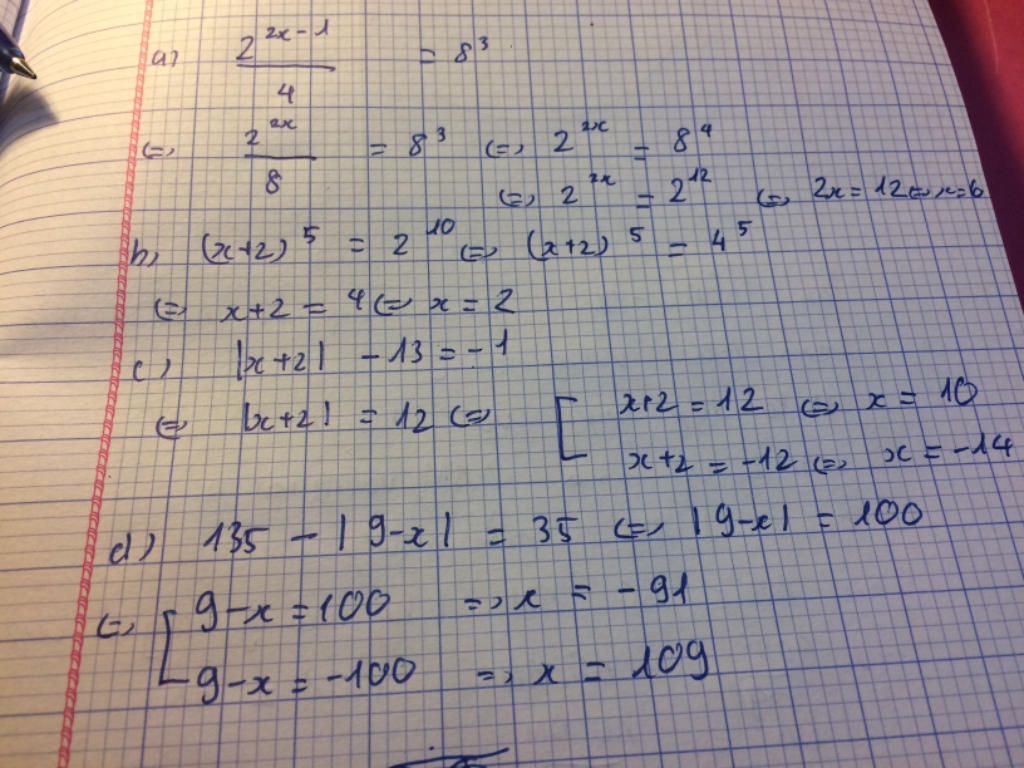 a) 2^{2x-1} / 4 = 8^3
<=> 2^{2x} / 8 = 8^3 <=> 2^{2x} = 8^4
<=> 2^{2x} = 2^{12} <=> 2x = 12 <=> x = 6
b) (x+2)^5 = 2^{10} <=> (x+2)^5 = 4^5
<=> x+2 = 4 <=> x = 2
c) |x+2| - 13 = -1
<=> |x+2| = 12 <=> [ x+2 = 12 <=> x = 10
x+2 = -12 <=> x = -14
d) 135 - |9-x| = 35 <=> |9-x| = 100
<=> [ 9-x = 100 => x = -91
9-x = -100 => x = 109